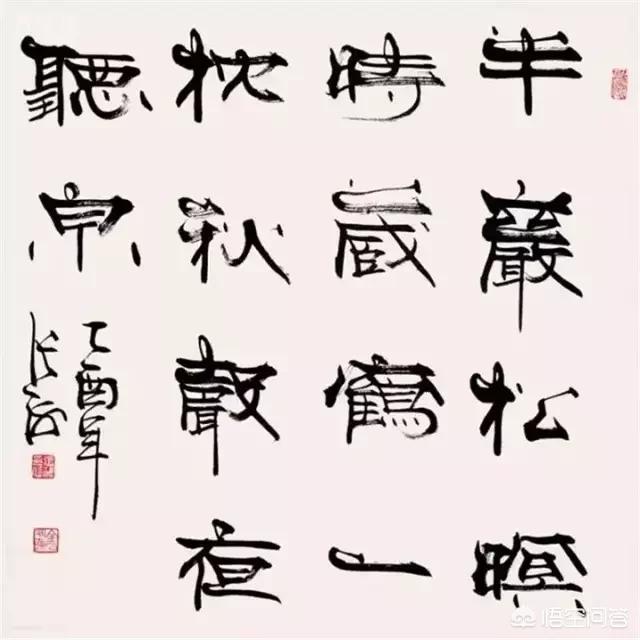 半巖松暝
時藏鶴一
枕秋聲夜
聽泉
乙酉年
張海
悟空问答